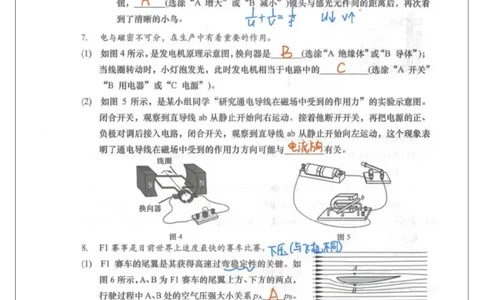 钮，A (选涂“A 增大”或“B 减小”)镜头与感光元件间的距离后，再次看
到了清晰的小鸟。
1/u+1/v=1/f u↓ v↑
7. 电与磁密不可分，在生产中有着重要的作用。
(1) 如图 4 所示，是发电机原理示意图，换向器是 B (选涂“A 绝缘体”或“B 导体”)；
当线圈转动时，小灯泡发光，此时发电机相当于电路中的 C (选涂“A 开关”
“B 用电器”或“C 电源”)。
(2) 如图 5 所示，是某小组同学“研究通电导线在磁场中受到的作用力”的实验示意图。
闭合开关，观察到直导线 ab 从静止开始向右运动。接着他断开开关，再把电源的正、
负极对调后接入电路，闭合开关，观察到直导线 ab 从静止开始向左运动，这个现象表
明了通电导线在磁场中受到的作用力方向可能与 电流方向 有关。
线圈
S
N
换向器
图 4
图 5
8. F1 赛事是目前世界上速度最快的赛车比赛。
下压(与飞机不同)
(1) F1 赛车的尾翼是其获得高速过弯稳定性的关键。如
图 6 所示，A、B 为 F1 赛车尾翼上方、下方的两点，
行驶过程中 A、B 处的空气压强大小关系 pA A pB。